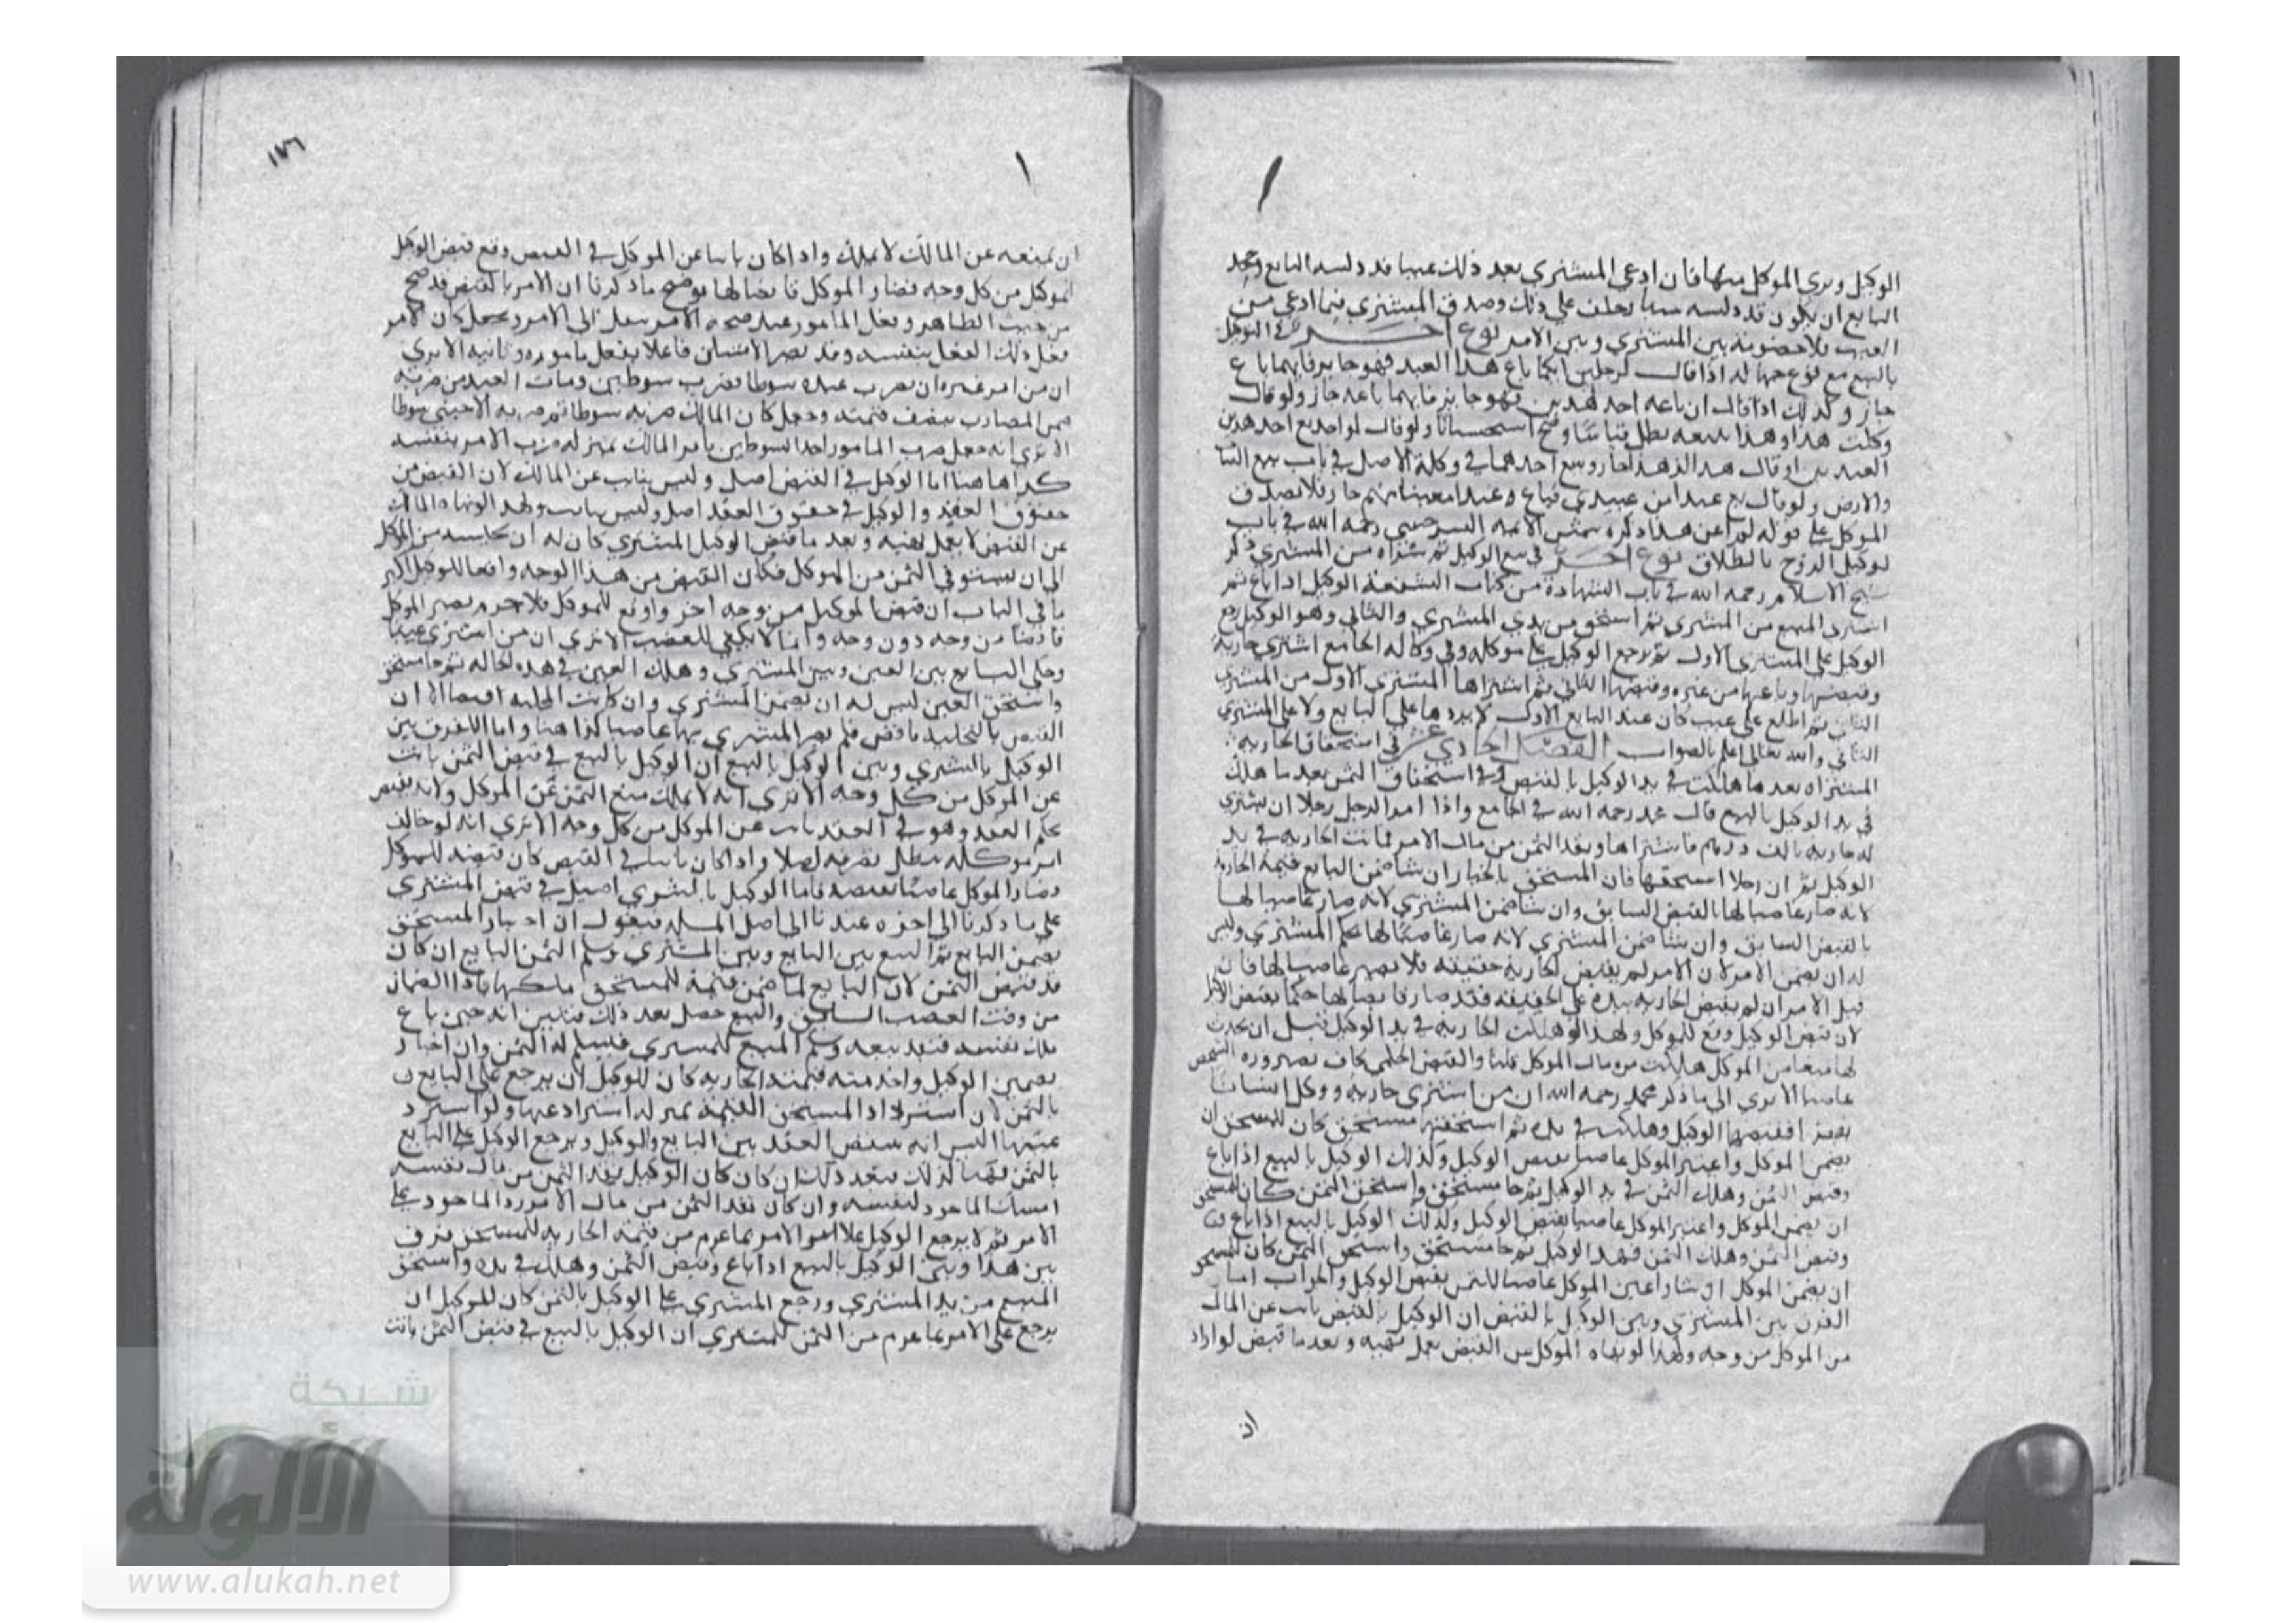 الوكيل وبري الموكل منها فان ادعي المشتري بعد ذلك عيبا قد دلسه البايع وجحد
البايع ان يكون قد دلسه حلف علي ذلك وصدق المشتري فيما ادعي من
العيب فلا خصومة بين المشتري وبين الامر نوع اخر في التوكيل
بالبيع مع نوع جهالة اذا قال لرجلين ايكما باع هذا العبد فهو جايز فايهما باع
جاز وكذلك اذا قال ان باعه احد هذين فهو جايز فايهما باعه جاز ولو قال
وكلت هذا او هذا ببيعه بطل قياسا وصح استحسانا ولو قال لواحد بع احد هذين
العبدين او قال هذا او هذا جاز وبيع احدهما في وكالة الاصل في باب بيع
والارض ولو قال بع عبدا من عبيدي فباع عبدا معينا منهم جاز فلا يصدق
الموكل علي قوله لم اعن هذا ذكره شمس الايمه السرخسي رحمه الله في باب
توكيل الزوج بالطلاق نوع اخر في بيع الوكيل ثم شراه من المشتري ذكر
شيخ الاسلام رحمه الله في باب الشهادة من كتاب الشفعة الوكيل اذا باع ثم
اشترى المبيع من المشتري ثم استحق من يدي المشتري والثاني وهو الوكيل رجع
الوكيل علي المشتري الاول ثم يرجع الوكيل علي موكله وفي وكالة الجامع اشتري جارية
وقبضها وباعها من غيره وقبضها الثاني ثم اشتراها المشتري الاول من المشتري
الثاني ثم اطلع علي عيب كان عند البايع الاول لا يردها علي البايع ولا علي المشتري
الثاني والله تعالي اعلم بالصواب الفصل الحادي عشر في استحقاق الجارية
المشتراه بعد ما هلكت في يد الوكيل بالقبض وفي استحقاق الثمن بعد ما هلك
في يد الوكيل بالبيع قال محمد رحمه الله في الجامع واذا امر الرجل رجلا ان يشتري
له جارية بالف درهم فاشتراها ونقد الثمن من مال الامر فماتت الجارية في يد
الوكيل ثم ان رجلا استحقها فان المستحق بالخيار ان شا ضمن البايع قيمة الجارية
لانه صار غاصبا لها بالقبض السابق وان شا ضمن المشتري لانه صار غاصبا لها
بالقبض السابق وان شا ضمن المشتري لانه صار غاصبا لها حكم المشتري وليس
له ان يضمن الامر لان الامر لم يقبض الجارية حقيقة فلا يصير غاصبا لها فان
قيل الامر ان لم يقبض الجارية بيده علي الحقيقة فقد صار قابضا لها حكما بقبض
لان قبض الوكيل وقع للموكل ولهذا لو هلكت الجارية في يد الوكيل قبل ان يحدث
لها منعا من الموكل هلكت من مال الموكل قلنا والقبض الحكمي كاف لصيرورة الشخص
غاصبا الا يري الي ما ذكر محمد رحمه الله ان من اشتري جارية ووكل انسانا
بقبضها فقبضها الوكيل وهلكت في يده ثم استحقها مستحق كان للمستحق ان
يضمن الموكل واعتبر الموكل غاصبا بقبض الوكيل وكذلك الوكيل بالبيع اذا باع
وقبض الثمن وهلك الثمن في يد الوكيل ثم جا مستحق واستحق الثمن كان للمستحق
ان يضمن الموكل واعتبر الموكل غاصبا بقبض الوكيل وكذلك الوكيل بالبيع اذا باع
وقبض الثمن وهلك الثمن الوكيل ثم جا مستحق واستحق الثمن كان للمستحق
ان يضمن الموكل ان شا واعتبر الموكل غاصبا للثمن بقبض الوكيل والجواب اما
الفرق بين المشتري وبين الوكيل بالقبض ان الوكيل بالقبض نايب عن المالك
من الموكل من وجه ولهذا لو نهاه الموكل عن القبض يعمل نهيه وبعد ما قبض لو اراد
ان
١٧٦
ان يمنعه عن المالك لا يملك واذا كان نايبا عن الموكل في القبض وقع قبض الوكيل
للموكل من كل وجه فصار الموكل قابضا لها يوضح ما ذكرنا ان الامر بالقبض قد صح
من حيث الظاهر وفعل المامور عند صحة الامر ينتقل الي الامر ويجعل كان الامر
فعل ذلك الفعل بنفسه وقد يصير الانسان فاعلا بفعل ماموره ونايبه الا يري
ان من امر غيره ان يضرب عبده سوطا فضرب سوطين ومات العبد من ضربه
ضمن الضارب نصف قيمته وجعل كان المالك ضربه سوطا ثم ضربه الاجنبي سوطا
الا تري انه جعل ضرب المامور احد السوطين بامر المالك بمنزلة ضرب الامر بنفسه
كذا هاهنا اما الوكيل في القبض اصل وليس بنايب عن المالك لان القبض من
حقوق العقد والوكيل في حقوق العقد اصل وليس بنايب ولهذا لو نهاه المالك
عن القبض لا يعمل نهيه وبعد ما قبض الوكيل المشتري كان له ان يحبسه من الموكل
الي ان يستوفي الثمن من الموكل فكان القبض من هذا الوجه واقعا للوكيل اكثر
ما في الباب ان قبض الوكيل من وجه اخر واقع للموكل فلا جرم يصير الموكل
قابضا من وجه دون وجه وانما لا يكفي للغصب الا تري ان من اشتري عينا
وخلي البايع بين العين وبين المشتري وهلك العين في هذه الحالة ثم جا مستحق
واستحق العين ليس له ان يضمن المشتري وان كانت التخلية قبضا الا ان
القبض بالتخلية ناقص فلم يصر المشتري بها غاصبا كذا هنا واما الفرق بين
الوكيل بالشري وبين الوكيل بالبيع ان الوكيل بالبيع في قبض الثمن نايب
عن الموكل من كل وجه الا تري انه لا يملك منع الثمن عن الموكل ولانه يقبض
بحكم العقد وهو في العقد نايب عن الموكل من كل وجه الا تري انه لو خالف
امر موكله بطل تصرفه اصلا واذا كان نايبا في القبض كان قبضه للموكل
وصار الموكل غاصبا بقبضه فاما الوكيل بالشري اصيل في قبض المشتري
علي ما ذكرنا الي اخره عدنا الي اصل المسله فنقول ان اختار المستحق
تضمين البايع تم البيع بين البايع وبين المشتري وسلم الثمن للبايع ان كان
قد قبض الثمن لان البايع لما ضمن قيمة للمستحق ملكها باداء الضمان
من وقت الغصب السابق والبيع حصل بعد ذلك فتبين انه حين باع
ملك نفسه فنفذ بيعه وسلم المبيع للمشتري فيسلم له الثمن وان اختار
تضمين الوكيل واخذ منه قيمة الجارية كان للوكيل ان يرجع علي البايع
بالثمن لان استرداد المستحق القيمة بمنزلة استرداد عينها ولو استرد
عينها اليس انه ينتقض العقد بين البايع والوكيل ويرجع الوكيل علي البايع
بالثمن فهنا كذلك فبعد ذلك ان كان كان الوكيل نقد الثمن من مال نفسه
امسك الماخوذ لنفسه وان كان نقد الثمن من مال الامر رد الماخوذ علي
الامر ثم لا يرجع الوكيل علي الامر بما غرم من قيمة الجارية للمستحق فرق
بين هذا وبين الوكيل بالبيع اذا باع وقبض الثمن وهلك في يده واستحق
المبيع من يد المشتري ورجع المشتري علي الوكيل بالثمن كان للوكيل ان
يرجع علي الامر بما غرم من الثمن للمشتري ان الوكيل بالبيع في قبض الثمن نايب
شبكة
الألوكة
www.alukah.net